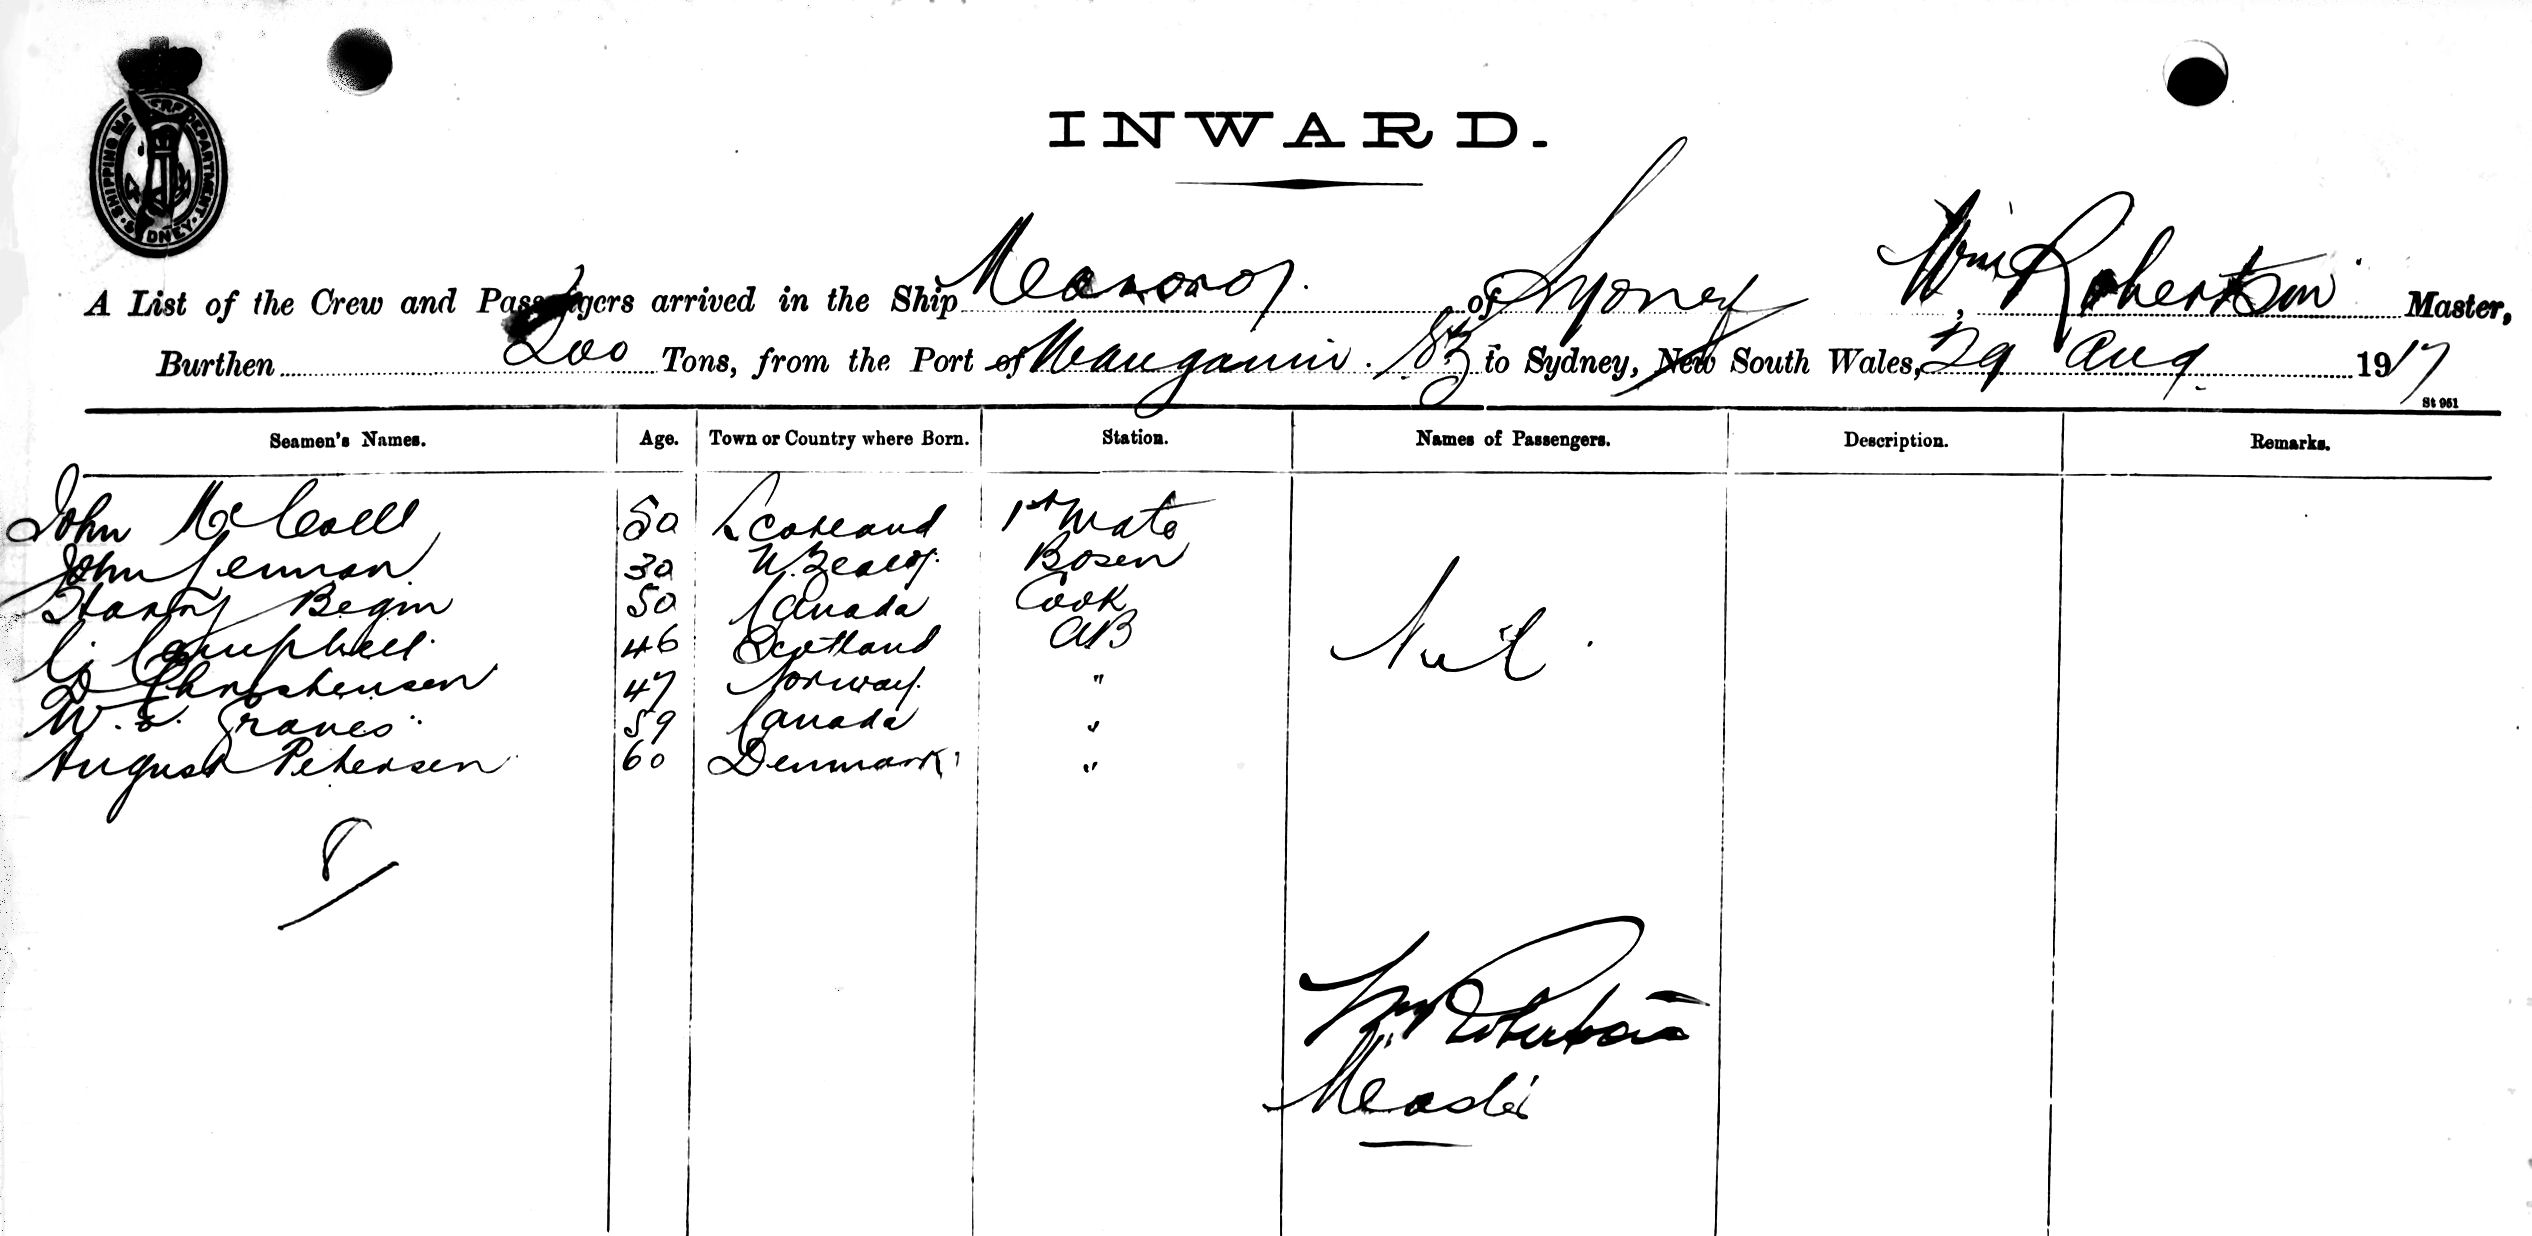 SHIPPING MASTER'S DEPARTMENT · SYDNEY ·
INWARD.
A List of the Crew and Passengers arrived in the Ship of Sydney Wm Robertson, Master,
Burthen 200 Tons, from the Port of to Sydney, New South Wales, 29 Aug 1917
St 961
Seamen's Names. Age. Town or Country where Born. Station. Names of Passengers. Description. Remarks.
John McColl 50 Scotland 1st Mate
John Lennan 30 N. Zeald. Bosen
Harry Begin 50 Canada Cook
C. Campbell. 46 Scotland AB
D Christensen 47 Norway. "
W. Graves 59 Canada "
August Petersen 60 Denmark "
Nil.
8
Wm Robertson
Master